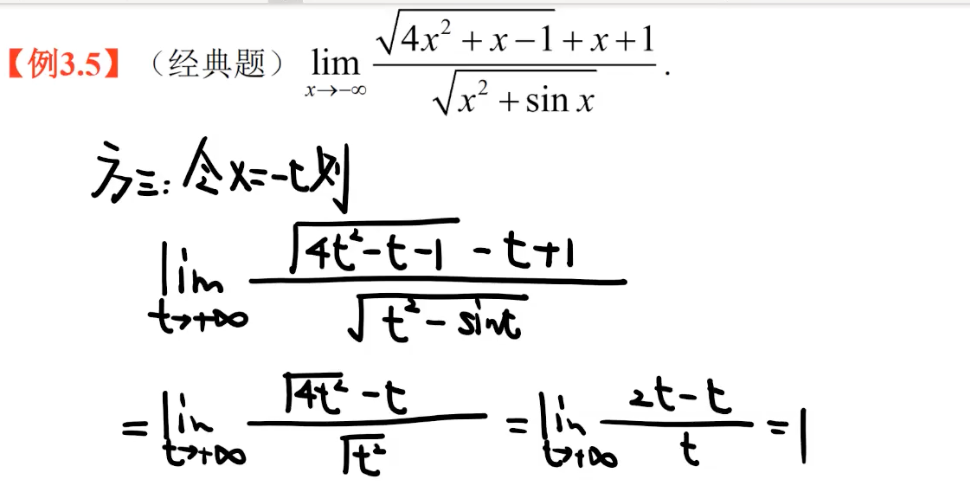 【例3.5】（经典题） lim_{x→-∞} (√(4x²+x-1)+x+1)/√(x²+sin x) .
方三: 令x=-t则
lim_{t→+∞} (√(4t²-t-1) -t+1)/√(t²-sint)
= lim_{t→+∞} (√(4t²) -t)/√(t²) = lim_{t→+∞} (2t-t)/t = 1